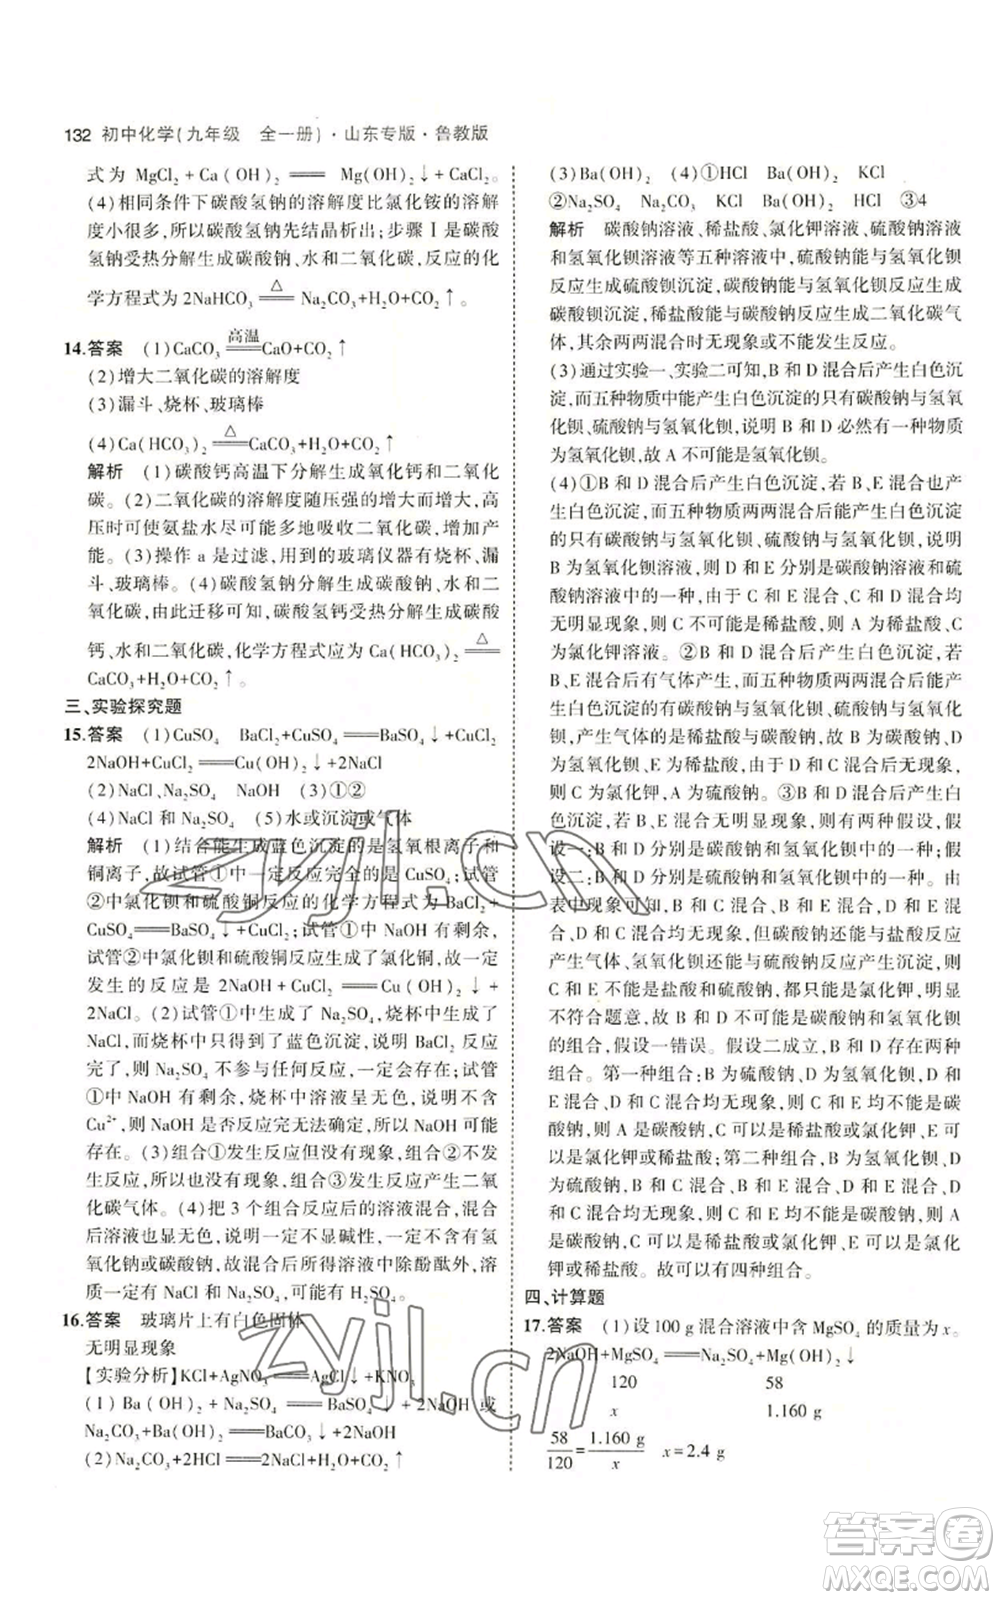 132 初中化学(九年级 全一册)·山东专版·鲁教版
式为 MgCl₂+Ca(OH)₂══Mg(OH)₂↓+CaCl₂。
(4)相同条件下碳酸氢钠的溶解度比氯化铵的溶解
度小,所以碳酸氢钠先结晶析出;步骤Ⅰ是碳酸
氢钠受热分解生成碳酸钠、水和二氧化碳,反应的化
学方程式为2NaHCO₃═△═Na₂CO₃+H₂O+CO₂↑。
14.答案 (1)CaCO₃═高温═CaO+CO₂↑
(2)增大二氧化碳的溶解度
(3)漏斗、烧杯、玻璃棒
(4)Ca(HCO₃)₂═△═CaCO₃+H₂O+CO₂↑
解析 (1)碳酸钙高温下分解生成氧化钙和二氧化
碳。(2)二氧化碳的溶解度随压强的增大而增大,高
压时可使氨盐水尽可能多地吸收二氧化碳,增加产
能。(3)操作 a 是过滤,用到的玻璃仪器有烧杯、漏
斗、玻璃棒。(4)碳酸氢钠分解生成碳酸钠、水和二
氧化碳,由此迁移可知,碳酸氢钙受热分解生成碳酸
钙、水和二氧化碳,化学方程式应为 Ca(HCO₃)₂═△═
CaCO₃+H₂O+CO₂↑。
三、实验探究题
15.答案 (1)CuSO₄ BaCl₂+CuSO₄══BaSO₄↓+CuCl₂
2NaOH+CuCl₂══Cu(OH)₂↓+2NaCl
(2)NaCl、Na₂SO₄ NaOH (3)①②
(4)NaCl 和 Na₂SO₄ (5)水或沉淀或气体
解析 (1)结合能生成蓝色沉淀的是氢氧根离子和
铜离子,故试管①中一定反应完全的是 CuSO₄;试管
②中氯化钡和硫酸铜反应的化学方程式为 BaCl₂+
CuSO₄══BaSO₄↓+CuCl₂;试管①中 NaOH 有剩余,
试管②中氯化钡和硫酸铜反应生成了氯化铜,故一定
发生的反应是 2NaOH + CuCl₂══Cu(OH)₂↓+
2NaCl。(2)试管①中生成了 Na₂SO₄,烧杯中生成了
NaCl,而烧杯中得到了蓝色沉淀,说明 BaCl₂ 反应完
全了,而 Na₂SO₄ 不参与任何反应,一定会存在。试管
①中 NaOH 有剩余,烧杯中溶液呈无色,说明不含
Cu²⁺,故 NaOH 是否反应完无法确定,因此可能
存在。(3)组合①发生反应但没有现象,组合②不发
生反应,也没有现象,而组合③发生反应产生二氧
化碳气体。(4)把 3 个组合反应后的溶液混合,混合
后溶液也显无色,说明一定不显碱性,一定不含有氢
氧化钠或碳酸钠,说明所得溶液中除酚酞外,溶
质一定有 NaCl 和 Na₂SO₄,可能有 H₂SO₄。
16.答案 玻璃片上有白色固体
无明显现象
【实验分析】KCl+AgNO₃══AgCl↓+KNO₃
(1) Ba(OH)₂ + Na₂SO₄══BaSO₄↓+2NaOH 或
Na₂CO₃+Ba(OH)₂══BaCO₃↓+2NaOH
(2)Na₂CO₃+2HCl══2NaCl+H₂O+CO₂↑
(3)Ba(OH)₂ (4)①HCl Ba(OH)₂ KCl
②Na₂SO₄ Na₂CO₃ KCl Ba(OH)₂ HCl ③4
解析 碳酸钠溶液、稀盐酸、氯化钾溶液、硫酸钠溶液
和氢氧化钡溶液等五种溶液中,硫酸钠能与氢氧化钡
反应生成硫酸钡沉淀,碳酸钠能与氢氧化钡反应生成
碳酸钡沉淀,稀盐酸能与碳酸钠反应生成二氧化碳气
体,其余两两混合时无现象或不能发生反应。
(3)通过实验一、实验二可知,B 和 D 混合后产生白色沉
淀,而五种物质中能产生白色沉淀的只有碳酸钠与氢氧
化钡、硫酸钠与氢氧化钡,说明 B 和 D 必然有一种物质
为氢氧化钡,故 A 不可能是氢氧化钡。
(4)①B 和 D 混合后产生白色沉淀,A 和 D 混合后也产
生白色沉淀,而五种物质两两混合后产生白色沉淀
的只有碳酸钠与氢氧化钡溶液、硫酸钠与氢氧化
钡溶液,则 D 是氢氧化钡,B、A 是碳酸钠溶液和硫
酸钠溶液中的一种,由于 C 和 E 混合、A 和 E 混合均
无明显现象,则 C 不可能是稀盐酸,A 为硫酸钠,C
为氯化钾溶液。②B 和 D 混合后产生白色沉淀,同时
B、E 混合后有气体产生,A 和 E 混合后产生白色沉
淀,而五种物质两两混合产生白色沉淀的只有
碳酸钠与氢氧化钡、硫酸钠与氢氧化
钡,产生气体的是稀盐酸与碳酸钠,故 B 为碳酸钠,D
为氢氧化钡,E 为稀盐酸。由于 C 与 D 混合无明显现
象,则 C 为氯化钾,A 为硫酸钠。③B 和 D 混合后产生
白色沉淀,A 和 E 混合无明显现象,则有两种假设,假
设一:B 和 D 分别是碳酸钠和氢氧化钡中的一种;假
设二:B 和 D 分别是硫酸钠和氢氧化钡中的一种。由
表中现象可知,B 和 C 混合、B 和 E 混合、D 和 C 混合、
D 和 E 混合均无现象,但碳酸钠与盐酸反应会
产生气体、氢氧化钡还能与硫酸钠反应产生沉淀,
则剩余的不可能有硫酸钠,都只能是氯化钾,明显
不符合题意,故 B 和 D 不可能是碳酸钠和氢氧化钡
的组合,假设一错误。假设二成立,B 和 D 存在两种组
合。第一种组合:B 为硫酸钠、D 为氢氧化钡,则 B 和 E
混合、B 和 C 混合均无现象,A 和 D 混合无现象,只有碳
酸钠,则 A 是碳酸钠,C 可以是稀盐酸或氯化钾,E 可
以是氯化钾或稀盐酸。第二种组合:B 为氢氧化钡、D
为硫酸钠,则 B 和 A 混合产生沉淀,则 A 只能是碳酸
钠,A 是碳酸钠,则 C 可以是稀盐酸或氯化钾、E 可以是氯化
钾或稀盐酸。故可以有四种组合。
四、计算题
17.答案 (1)设 100 g 混合溶液中含 MgSO₄ 的质量为 x。
2NaOH+MgSO₄══Na₂SO₄+Mg(OH)₂↓
120 58
x 1.160 g
58/120=1.160 g/x x=2.4 g
zyjl.cn
zyjl.cn
答案圈
MXQE.COM